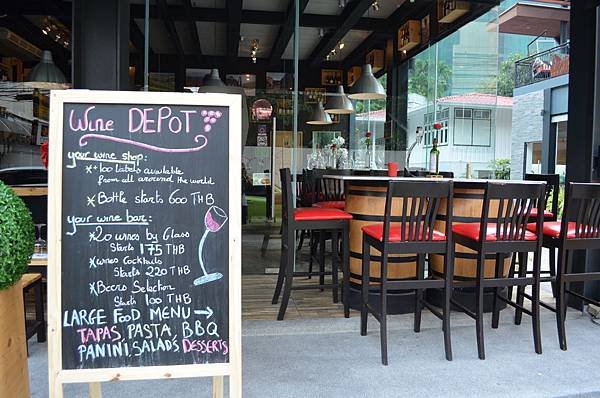 Wine DEPOT
your wine shop:
*+100 Labels available
from all around the world
*Bottle starts 600 THB
your wine bar:
*20 wines by Glass
Starts 175 THB
*wines Cocktails
Starts 220 THB
*Beers Selection
Starts 100 THB
LARGE FOOD MENU →
TAPAS, PASTA, BBQ
PANINI, SALADS, DESSERTS